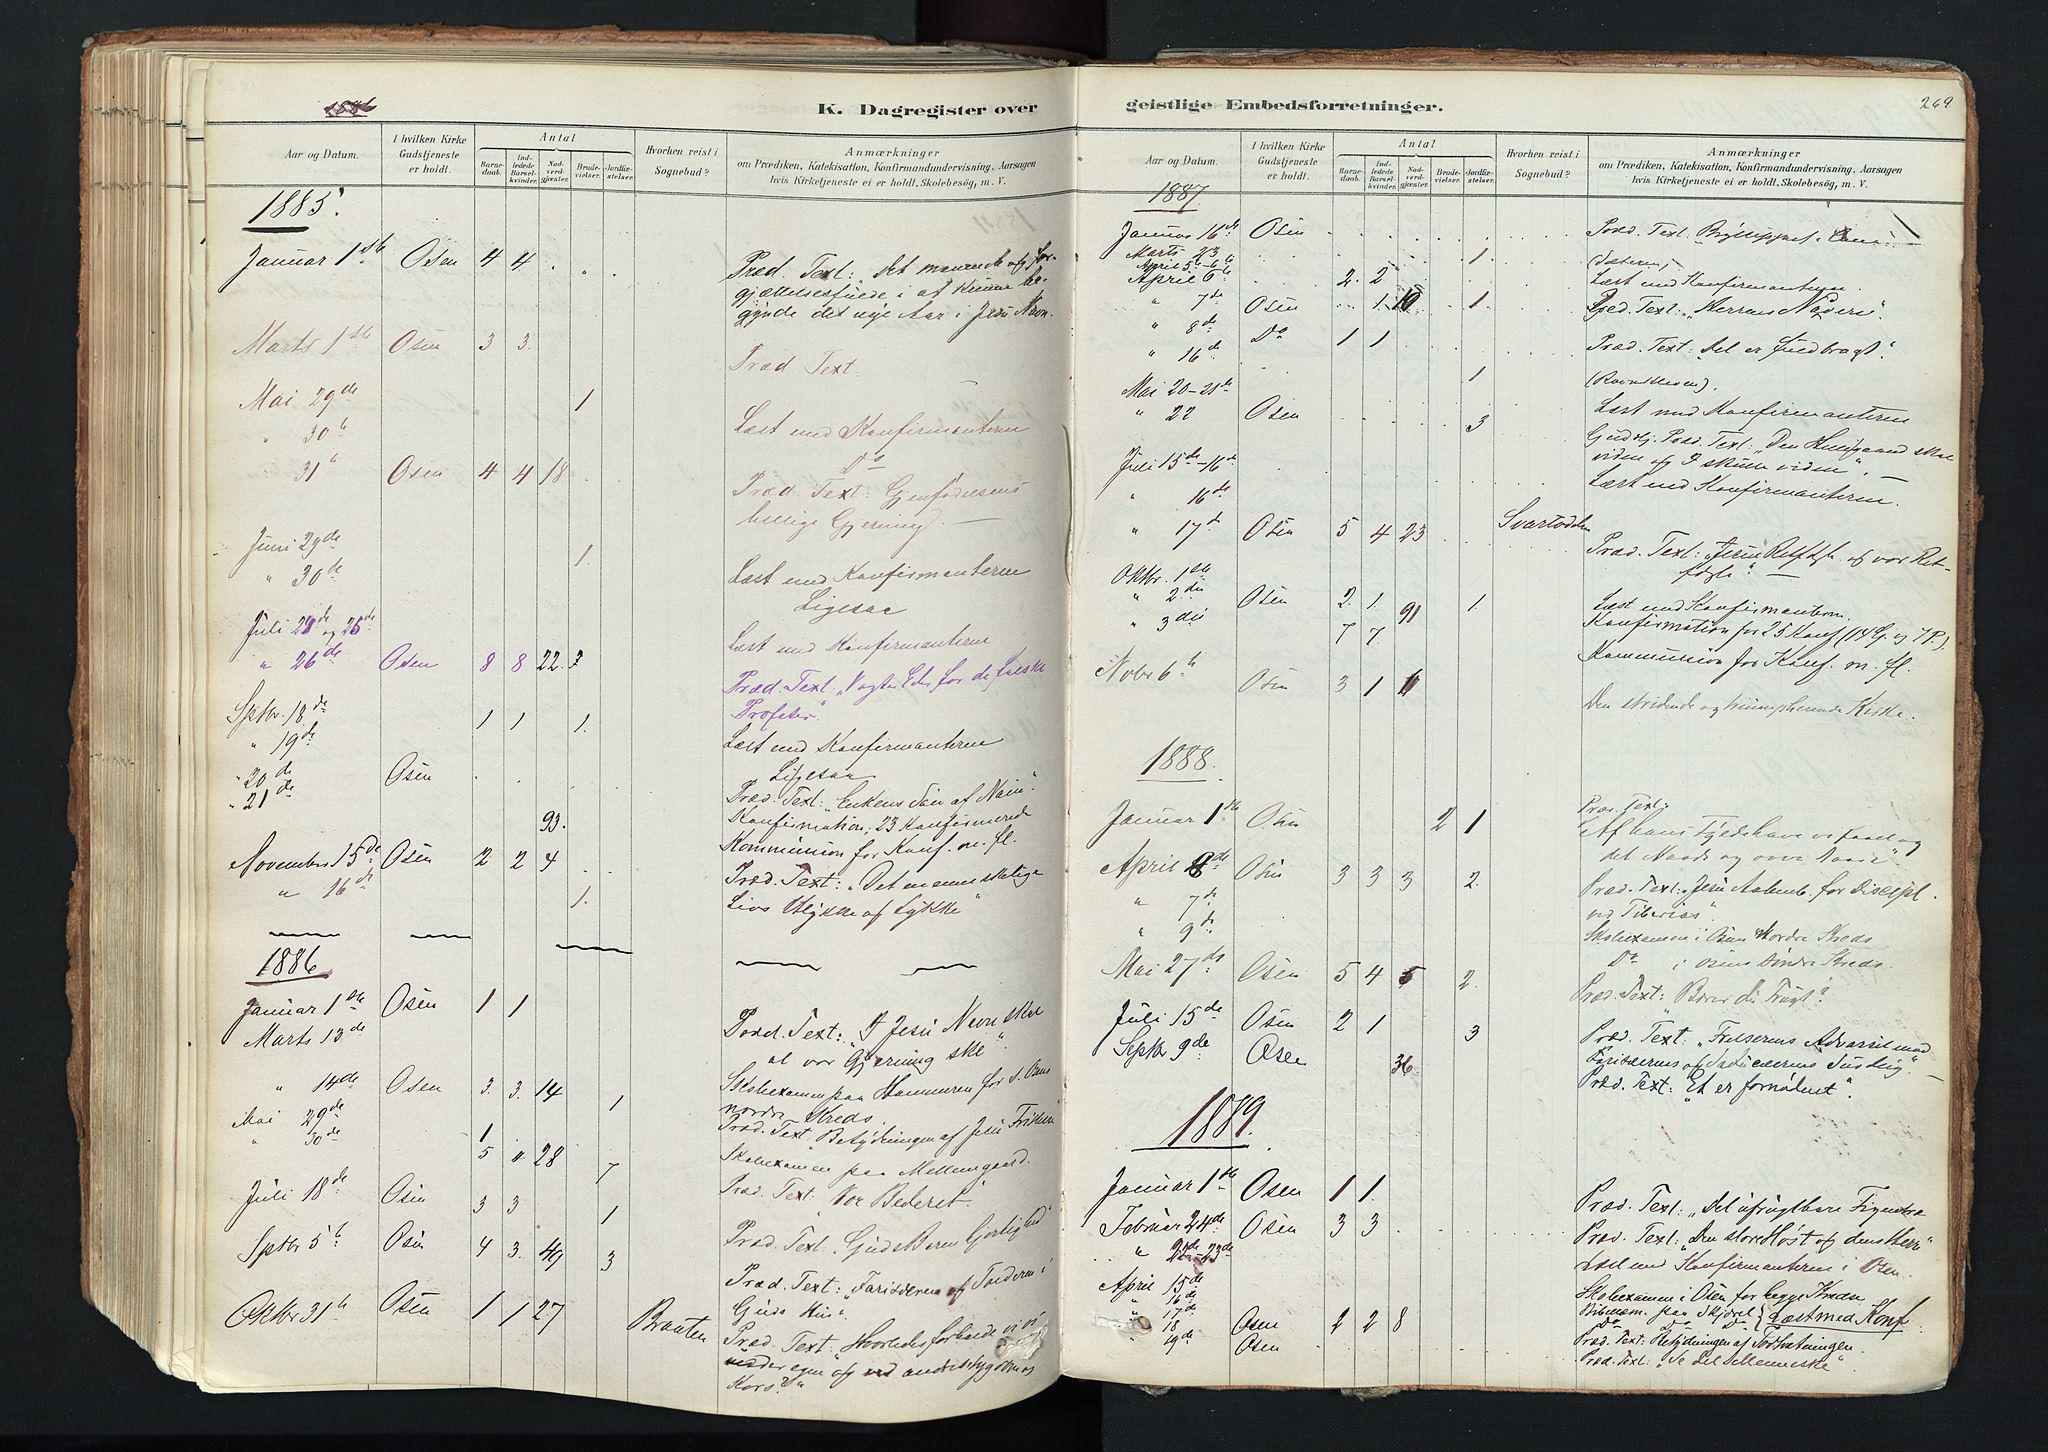 1886
K. Dagregister over
Aar og Datum.
I hvilken Kirke Gudstjeneste er holdt.
Antal
Barnedaab.
Indledede Barselkvinder.
Nadverdgjæster.
Brudevielser.
Jordfæstelser.
Hvorhen reist i Sognebud?
Anmærkninger
om Prædiken, Katekisation, Konfirmandundervisning, Aarsagen
hvis Kirketjeneste ei er holdt, Skolebesøg, m. V.
1885.
Januar 1ste Osen 4 4 Præd. Text: Det manende og for-
gjættelsesfulde i at kunne be-
gynde det nye Aar i Jesu Navn.
Marts 1ste Osen 3 3. Præd. Text.
Mai 29de 1
" 30te Læst med Konfirmanterne
Do
" 31te Osen 4 4 18 Præd. Text: Gjenfødelsens
hellige Gjerning.
Juni 29de 1.
" 30te Læst med Konfirmanterne
Ligesaa
Juli 25de Læst med Konfirmanterne
" 26de Osen 8 8 22 Præd. Text: "Vogter Eder for de falske
Profeter."
Sptbr. 18de 1 1 1. Læst med Konfirmanterne
" 19de Ligesaa
" 20de Osen Præd. Text: Enkens Søn af Nain.
" 21de 93. Konfirmation, 23 Konfirmerede
Kommunion for Konf. m. fl.
November 15de Osen 2 2 4 Præd. Text: "Det menneskelige
" 16de 1. Livs Ulykke og Lykke"
1886
Januar 1ste Osen 1 1 Præd. Text: "I Jesu Navn skal
al vor Gjerning ske".
Marts 13de Skoleexamen paa Hammeren for
nordre Kreds
" 14de Osen 3. 3. 14 1 Præd. Text: Betydningen af Jesu
Mai 29de 1 Skoleexamen paa Mellemgaard.
" 30de 5 " 28 7 Præd. Text: "Vor Bederet".
Juli 18de Osen 3 3 1 Præd. Text: Guds Børn
Sptbr 5te Osen 4 3. 49 3 Præd. Text: "Farisæeren og Tolderen i
Guds Hus".
Oktbr 31te Osen 1 1 27 Braaten Præd. Text: Hvorledes forholde vi os
under egen og ved andres
Kors?"
geistlige Embedsforretninger.
269
Aar og Datum.
I hvilken Kirke Gudstjeneste er holdt.
Antal
Barnedaab.
Indledede Barselkvinder.
Nadverdgjæster.
Brudevielser.
Jordfæstelser.
Hvorhen reist i Sognebud?
Anmærkninger
om Prædiken, Katekisation, Konfirmandundervisning, Aarsagen
hvis Kirketjeneste ei er holdt, Skolebesøg, m. V.
1887.
Januar 16de Osen Præd. Text: Bryllupet i Cana.
Marts 23 1.
April 5te-6te Læst med Konfirmanterne.
April 6te 2. 2
" 7de Osen 1. 10 1 Præd. Text: "Herrens Nadver".
" 8de Do 1 1 Præd. Text: "Det er fuldbragt".
" 16de 1
Mai 20-21de Læst med Konfirmanterne
" 22 Osen 3 Præd. Text: "Den
viden og I skulle viden".
Juli 15de-16de Læst med Konfirmanterne.
" 16de
" 17de Osen 5 4 23 Svartodden Præd. Text: "Jesu Retfdgh. og vor Ret-
fdgh".
Oktbr. 1ste Læst med Konfirmanterne.
" 2den Osen 2. 1. 1. Konfirmation for 25 Konf
" 3die 7 7 91 Kommunion for Konf. m. fl.
Novbr 6te Osen 3 1 Den stridende og triumpherende Kirke.
1888.
Januar 1ste Osen 2 1 Præd. Text:
"Af hans Fylde have vi faaet og
det Naade og over Naade"
April 8de Osen 3 3 3 2. Præd. Text: Jesu Aabenb. for Discipl.
ved Tiberias".
" 7de Skoleexamen i Osens Nordre Kreds
" 9de Do i Osens Søndre Kreds.
Mai 27de Osen 5 4 5 2. Præd. Text: "Bærer du Frugt?
Juli 15de Osen 2 1 3 Præd. Text: "Frelserens Advarsel mod
Farisæernes og Saducæernes Surdeig".
Septbr 9de Osen 36 Præd. Text: "Et er fornødent".
1889.
Januar 1ste Osen 1 1. Præd. Text: "Det ufrugtbare Figentræ
Februar 24de Osen 3 3 Præd. Text: "Den store Høst og dens Herre"
" 22de-23de Læst med Konfirmanterne i Osen.
April 15de Skoleexamen i Osen for begge Kredse
" 16de paa Skjdrel } Læst med Konf.
" 17de Do Do Do
" 18 Osen 2 2 8 Præd. Text: Betydningen af
" 19de Osen Præd. Text: "Se det Menneske"